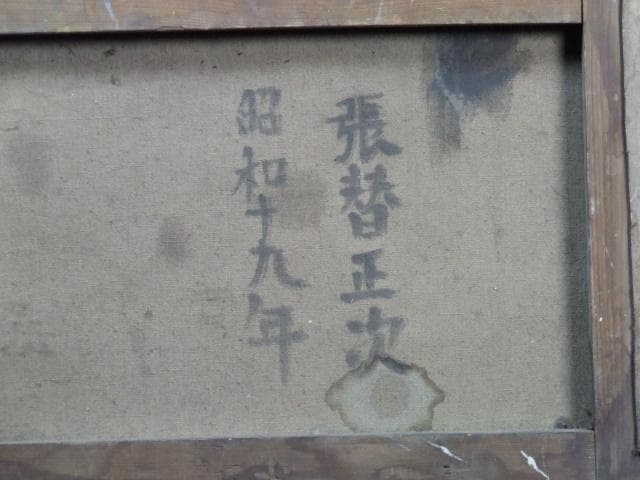 張替正次
昭和十九年